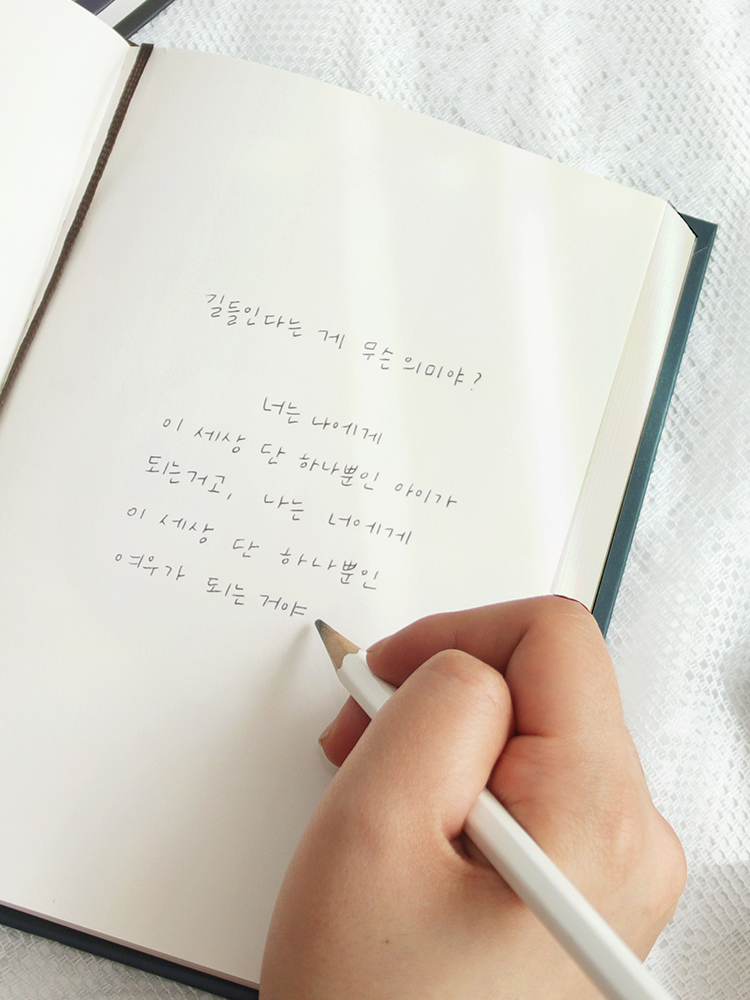 길들인다는 게 무슨 의미야?
너는 나에게
이 세상 단 하나뿐인 아이가
되는거고, 나는 너에게
이 세상 단 하나뿐인
여우가 되는 거야